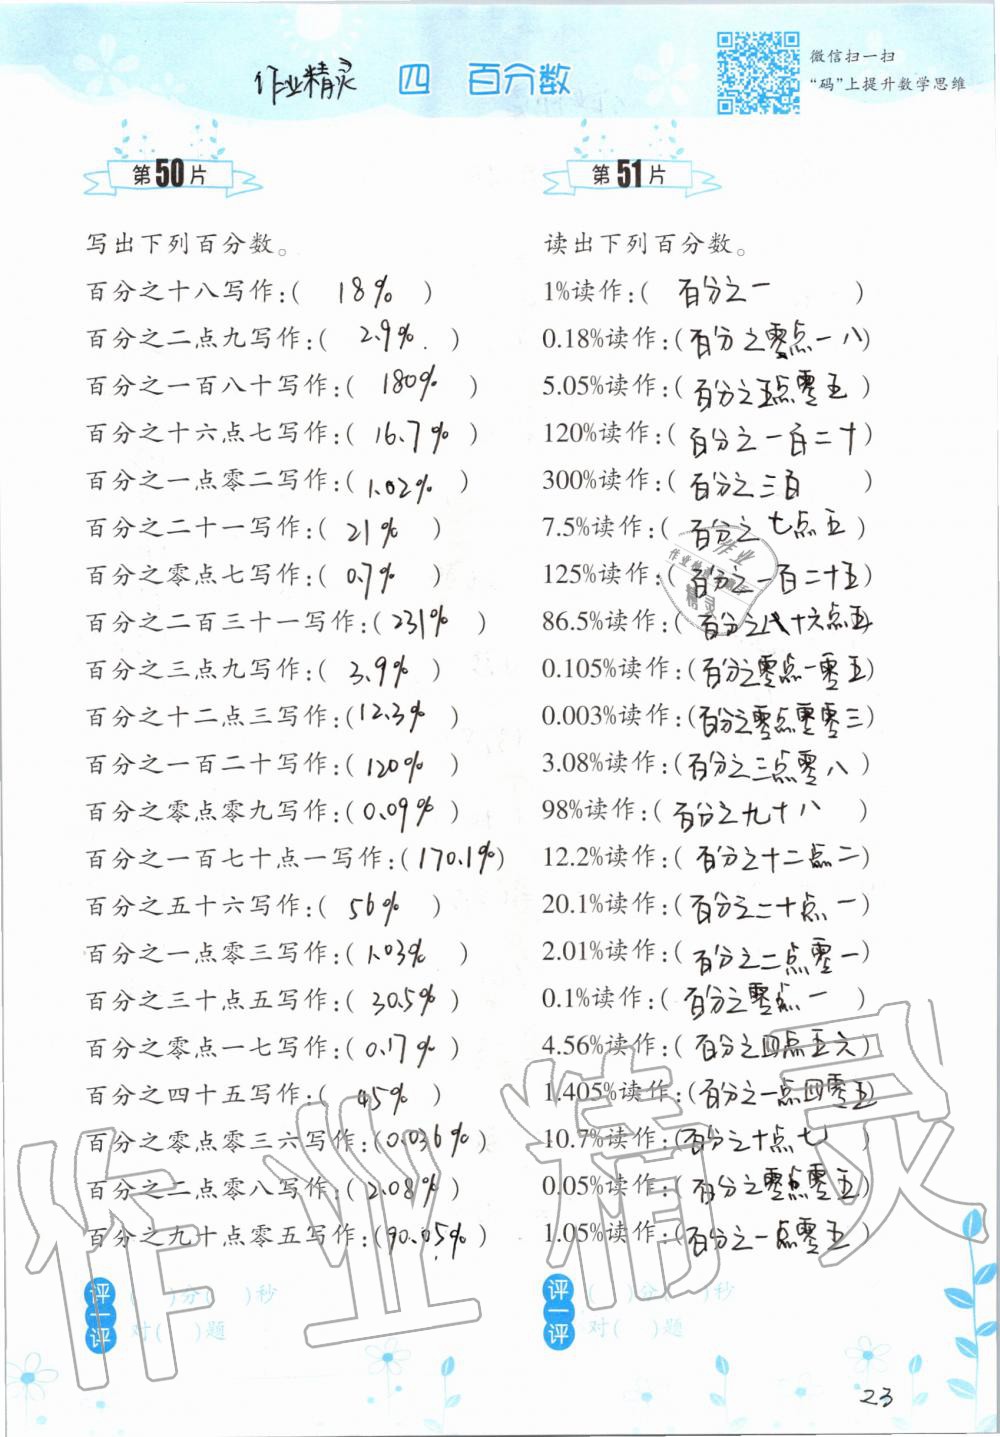 作业精灵
四 百分数
微信扫一扫
“码”上提升数学思维
第50片
写出下列百分数。
百分之十八写作:( 18% )
百分之二点九写作:( 2.9% )
百分之一百八十写作:( 180% )
百分之十六点七写作:( 16.7% )
百分之一点零二写作:( 1.02% )
百分之二十一写作:( 21% )
百分之零点七写作:( 0.7% )
百分之二百三十一写作:( 231% )
百分之三点九写作:( 3.9% )
百分之十二点三写作:( 12.3% )
百分之一百二十写作:( 120% )
百分之零点零九写作:( 0.09% )
百分之一百七十点一写作:( 170.1% )
百分之五十六写作:( 56% )
百分之一点零三写作:( 1.03% )
百分之三十点五写作:( 30.5% )
百分之零点一七写作:( 0.17% )
百分之四十五写作:( 45% )
百分之零点零三六写作:( 0.036% )
百分之二点零八写作:( 2.08% )
百分之九十点零五写作:( 90.05% )
评一评
( )分( )秒
对( )题
第51片
读出下列百分数。
1%读作:( 百分之一 )
0.18%读作:( 百分之零点一八 )
5.05%读作:( 百分之五点零五 )
120%读作:( 百分之一百二十 )
300%读作:( 百分之三百 )
7.5%读作:( 百分之七点五 )
125%读作:( 百分之一百二十五 )
86.5%读作:( 百分之八十六点五 )
0.105%读作:( 百分之零点一零五 )
0.003%读作:( 百分之零点零零三 )
3.08%读作:( 百分之三点零八 )
98%读作:( 百分之九十八 )
12.2%读作:( 百分之十二点二 )
20.1%读作:( 百分之二十点一 )
2.01%读作:( 百分之二点零一 )
0.1%读作:( 百分之零点一 )
4.56%读作:( 百分之四点五六 )
1.405%读作:( 百分之一点四零五 )
10.7%读作:( 百分之十点七 )
0.05%读作:( 百分之零点零五 )
1.05%读作:( 百分之一点零五 )
评一评
( )分( )秒
对( )题
23
作业精灵